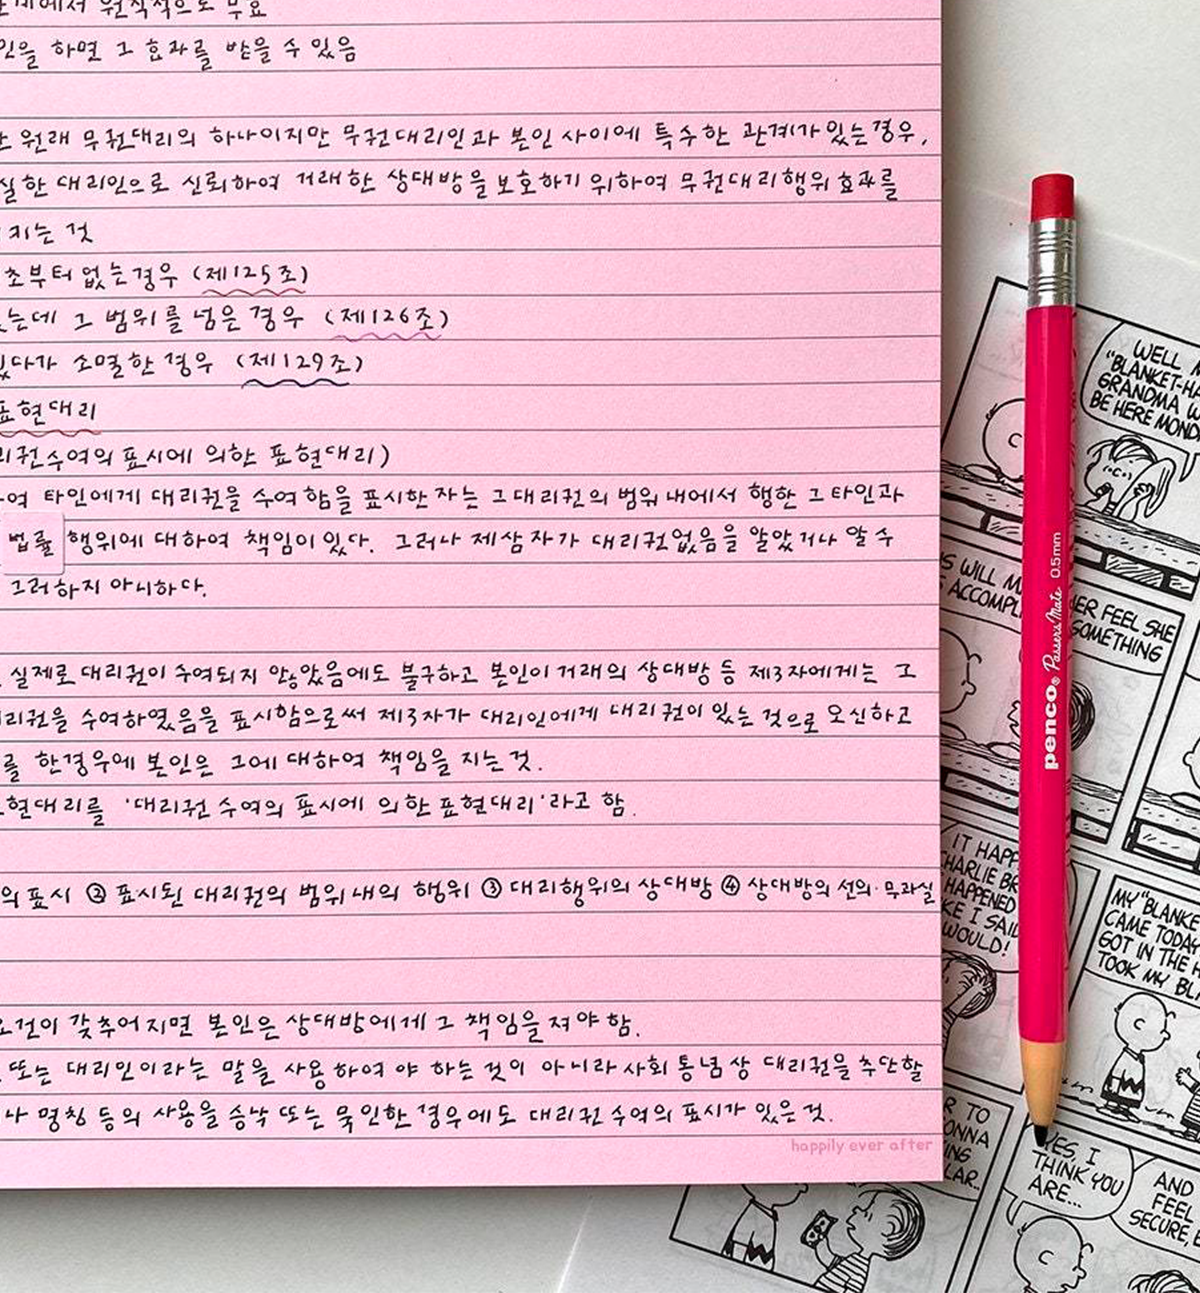 원칙적으로 무효
하면 그 효과를 받을 수 있음
원래 무권대리의 하나이지만 무권대리인과 본인 사이에 특수한 관계가 있는 경우,
실한 대리인으로 신뢰하여 거래한 상대방을 보호하기 위하여 무권대리행위 효과를
지는 것
초부터 없는 경우 (제125조)
는데 그 범위를 넘은 경우 (제126조)
있다가 소멸한 경우 (제129조)
표현대리
리권수여의 표시에 의한 표현대리)
타인에게 대리권을 수여함을 표시한 자는 그 대리권의 범위 내에서 행한 그 타인과
법률 행위에 대하여 책임이 있다. 그러나 제삼자가 대리권없음을 알았거나 알 수
그러하지 아니하다.
실제로 대리권이 수여되지 않았음에도 불구하고 본인이 거래의 상대방 등 제3자에게는 그
리권을 수여하였음을 표시함으로써 제3자가 대리인에게 대리권이 있는 것으로 오신하고
를 한경우에 본인은 그에 대하여 책임을 지는 것.
현대리를 '대리권 수여의 표시에 의한 표현대리'라고 함.
의 표시 ② 표시된 대리권의 범위내의 행위 ③ 대리행위의 상대방 ④ 상대방의 선의·무과실
요건이 갖추어지면 본인은 상대방에게 그 책임을 져야 함.
또는 대리인이라는 말을 사용하여야 하는 것이 아니라 사회통념상 대리권을 추단할
나 명칭 등의 사용을 승낙 또는 묵인한 경우에도 대리권 수여의 표시가 있은 것.
happily ever after
penco® Passers Mate 0.5mm
WELL
"BLANKET-HA
GRANDMA W
BE HERE MOND
WILL M
ACCOMPL
ER FEEL SHE
SOMETHING
IT HAPP
CHARLIE BR
HAPPENED
KE I SAID
WOULD!
MY "BLANKE
CAME TODAY
GOT IN THE H
TOOK MY BL
R TO
ONNA
ING
LAR..
YES, I
THINK YOU
ARE...
AND
FEEL
SECURE,